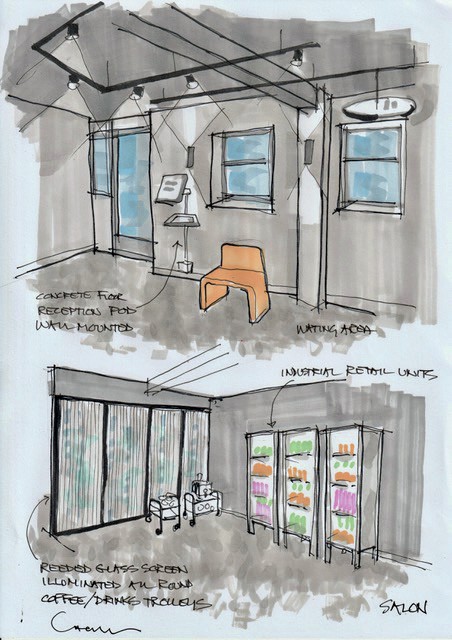 CONCRETE FLOOR
RECEPTION POD
WALL MOUNTED
WATING AREA
INDUSTRIAL RETAIL UNITS
REEDED GLASS SCREEN
ILLUMINATED ALL ROUND
COFFEE/DRINKS TROLLEYS
SALON